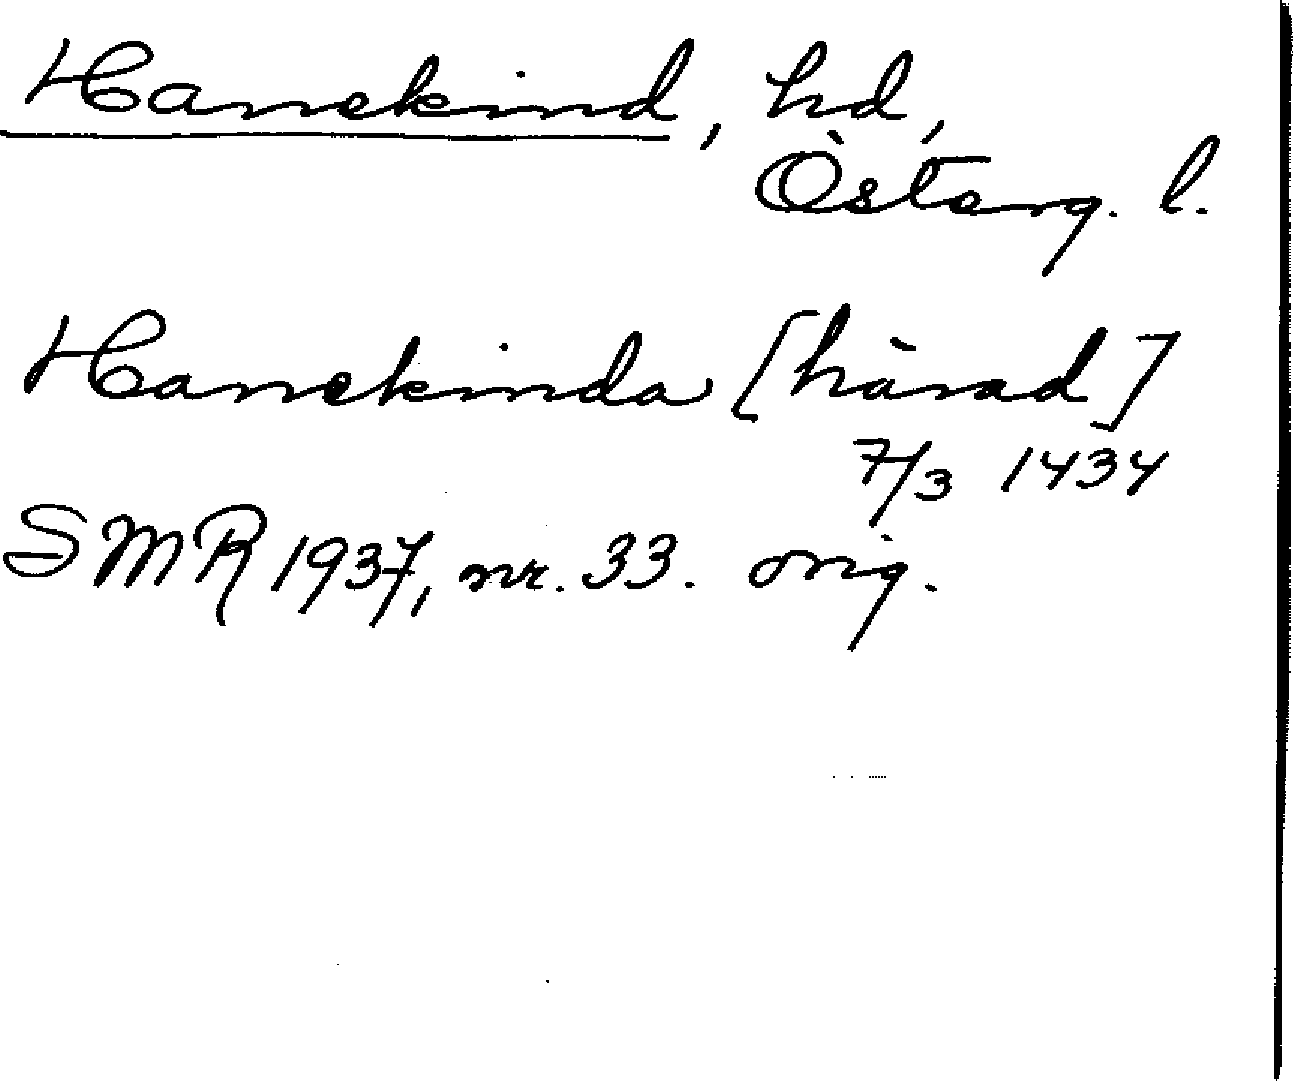 Hanekind, hd,
Österg. l.
Hanekinda [härad]
7/3 1434
SMR 1937, nr. 33. orig.